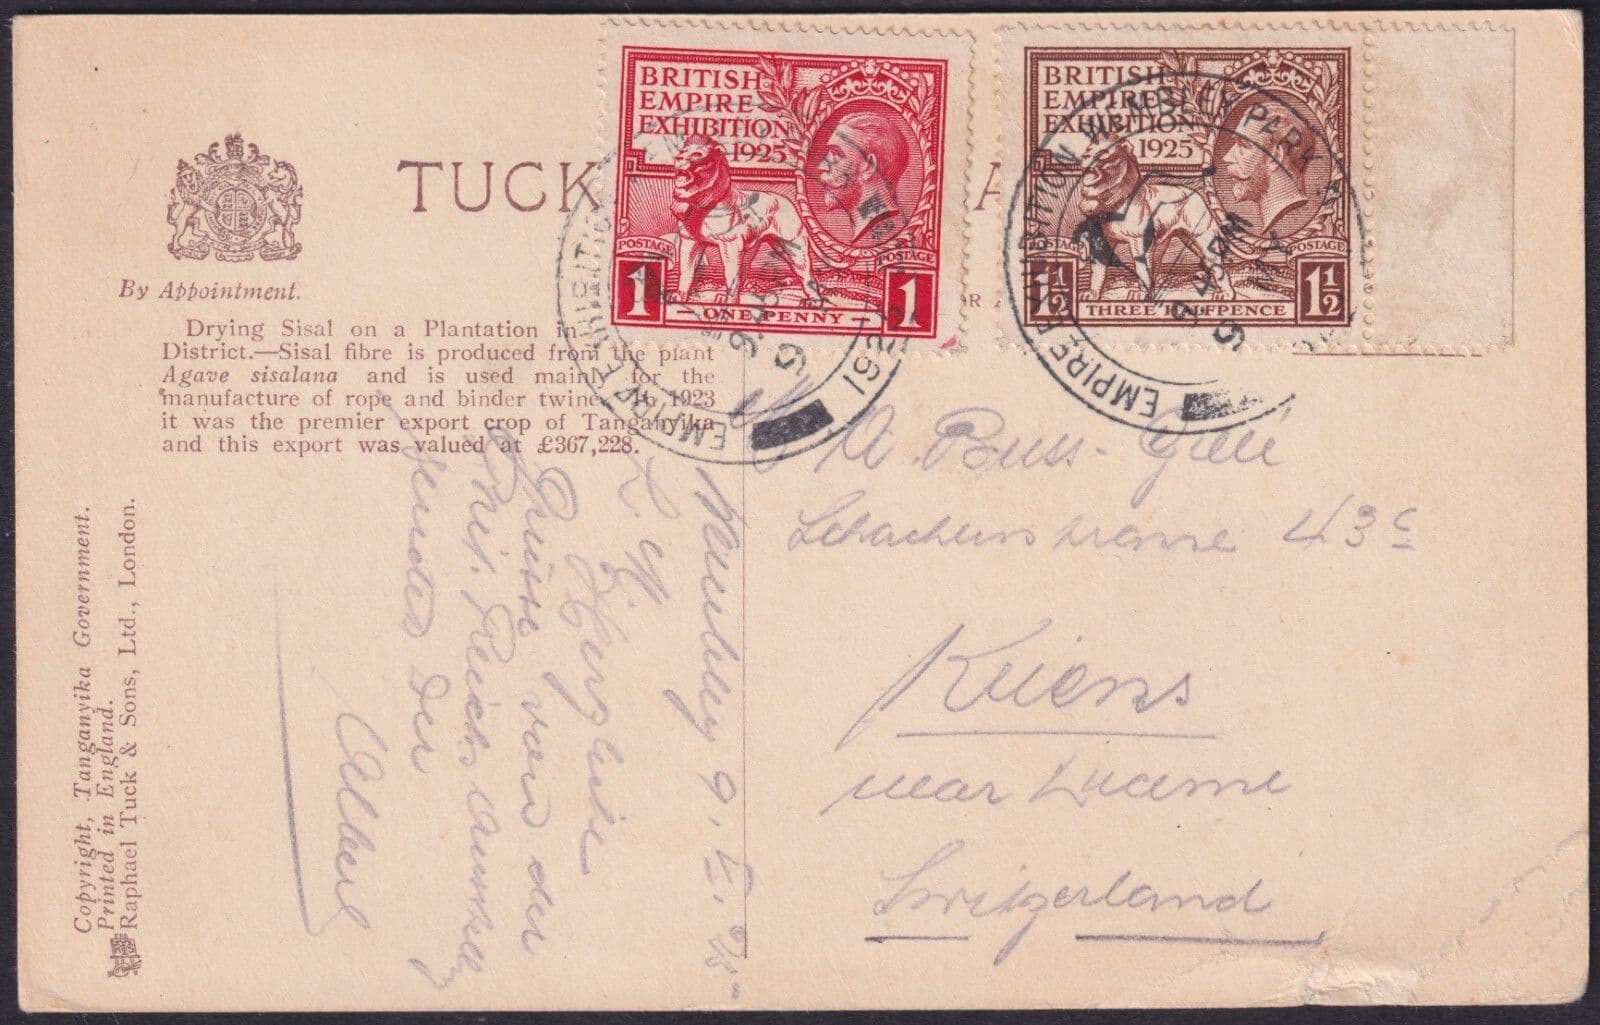 TUCK
By Appointment.
Drying Sisal on a Plantation in
District.—Sisal fibre is produced from the plant
Agave sisalana and is used mainly for the
manufacture of rope and binder twine. In 1923
it was the premier export crop of Tanganyika
and this export was valued at £367,228.
Copyright, Tanganyika Government.
Printed in England.
Raphael Tuck & Sons, Ltd., London.
BRITISH
EMPIRE
EXHIBITION
1925
POSTAGE POSTAGE
1 ONE PENNY 1
BRITISH
EMPIRE
EXHIBITION
1925
POSTAGE POSTAGE
1½ THREE HALFPENCE 1½
EMPIRE EXHIBITION
9 45PM
9
192
EMPIRE EXHIBITION WEMBLEY PARK
9 45PM
9
Wembley 9. V. 25
L. M.
Herzliche
Grüsse von der
brit. Reichsausstellg
sendet Dir
Albert
A. Buss-
43c
Kriens
near Lucerne
Switzerland